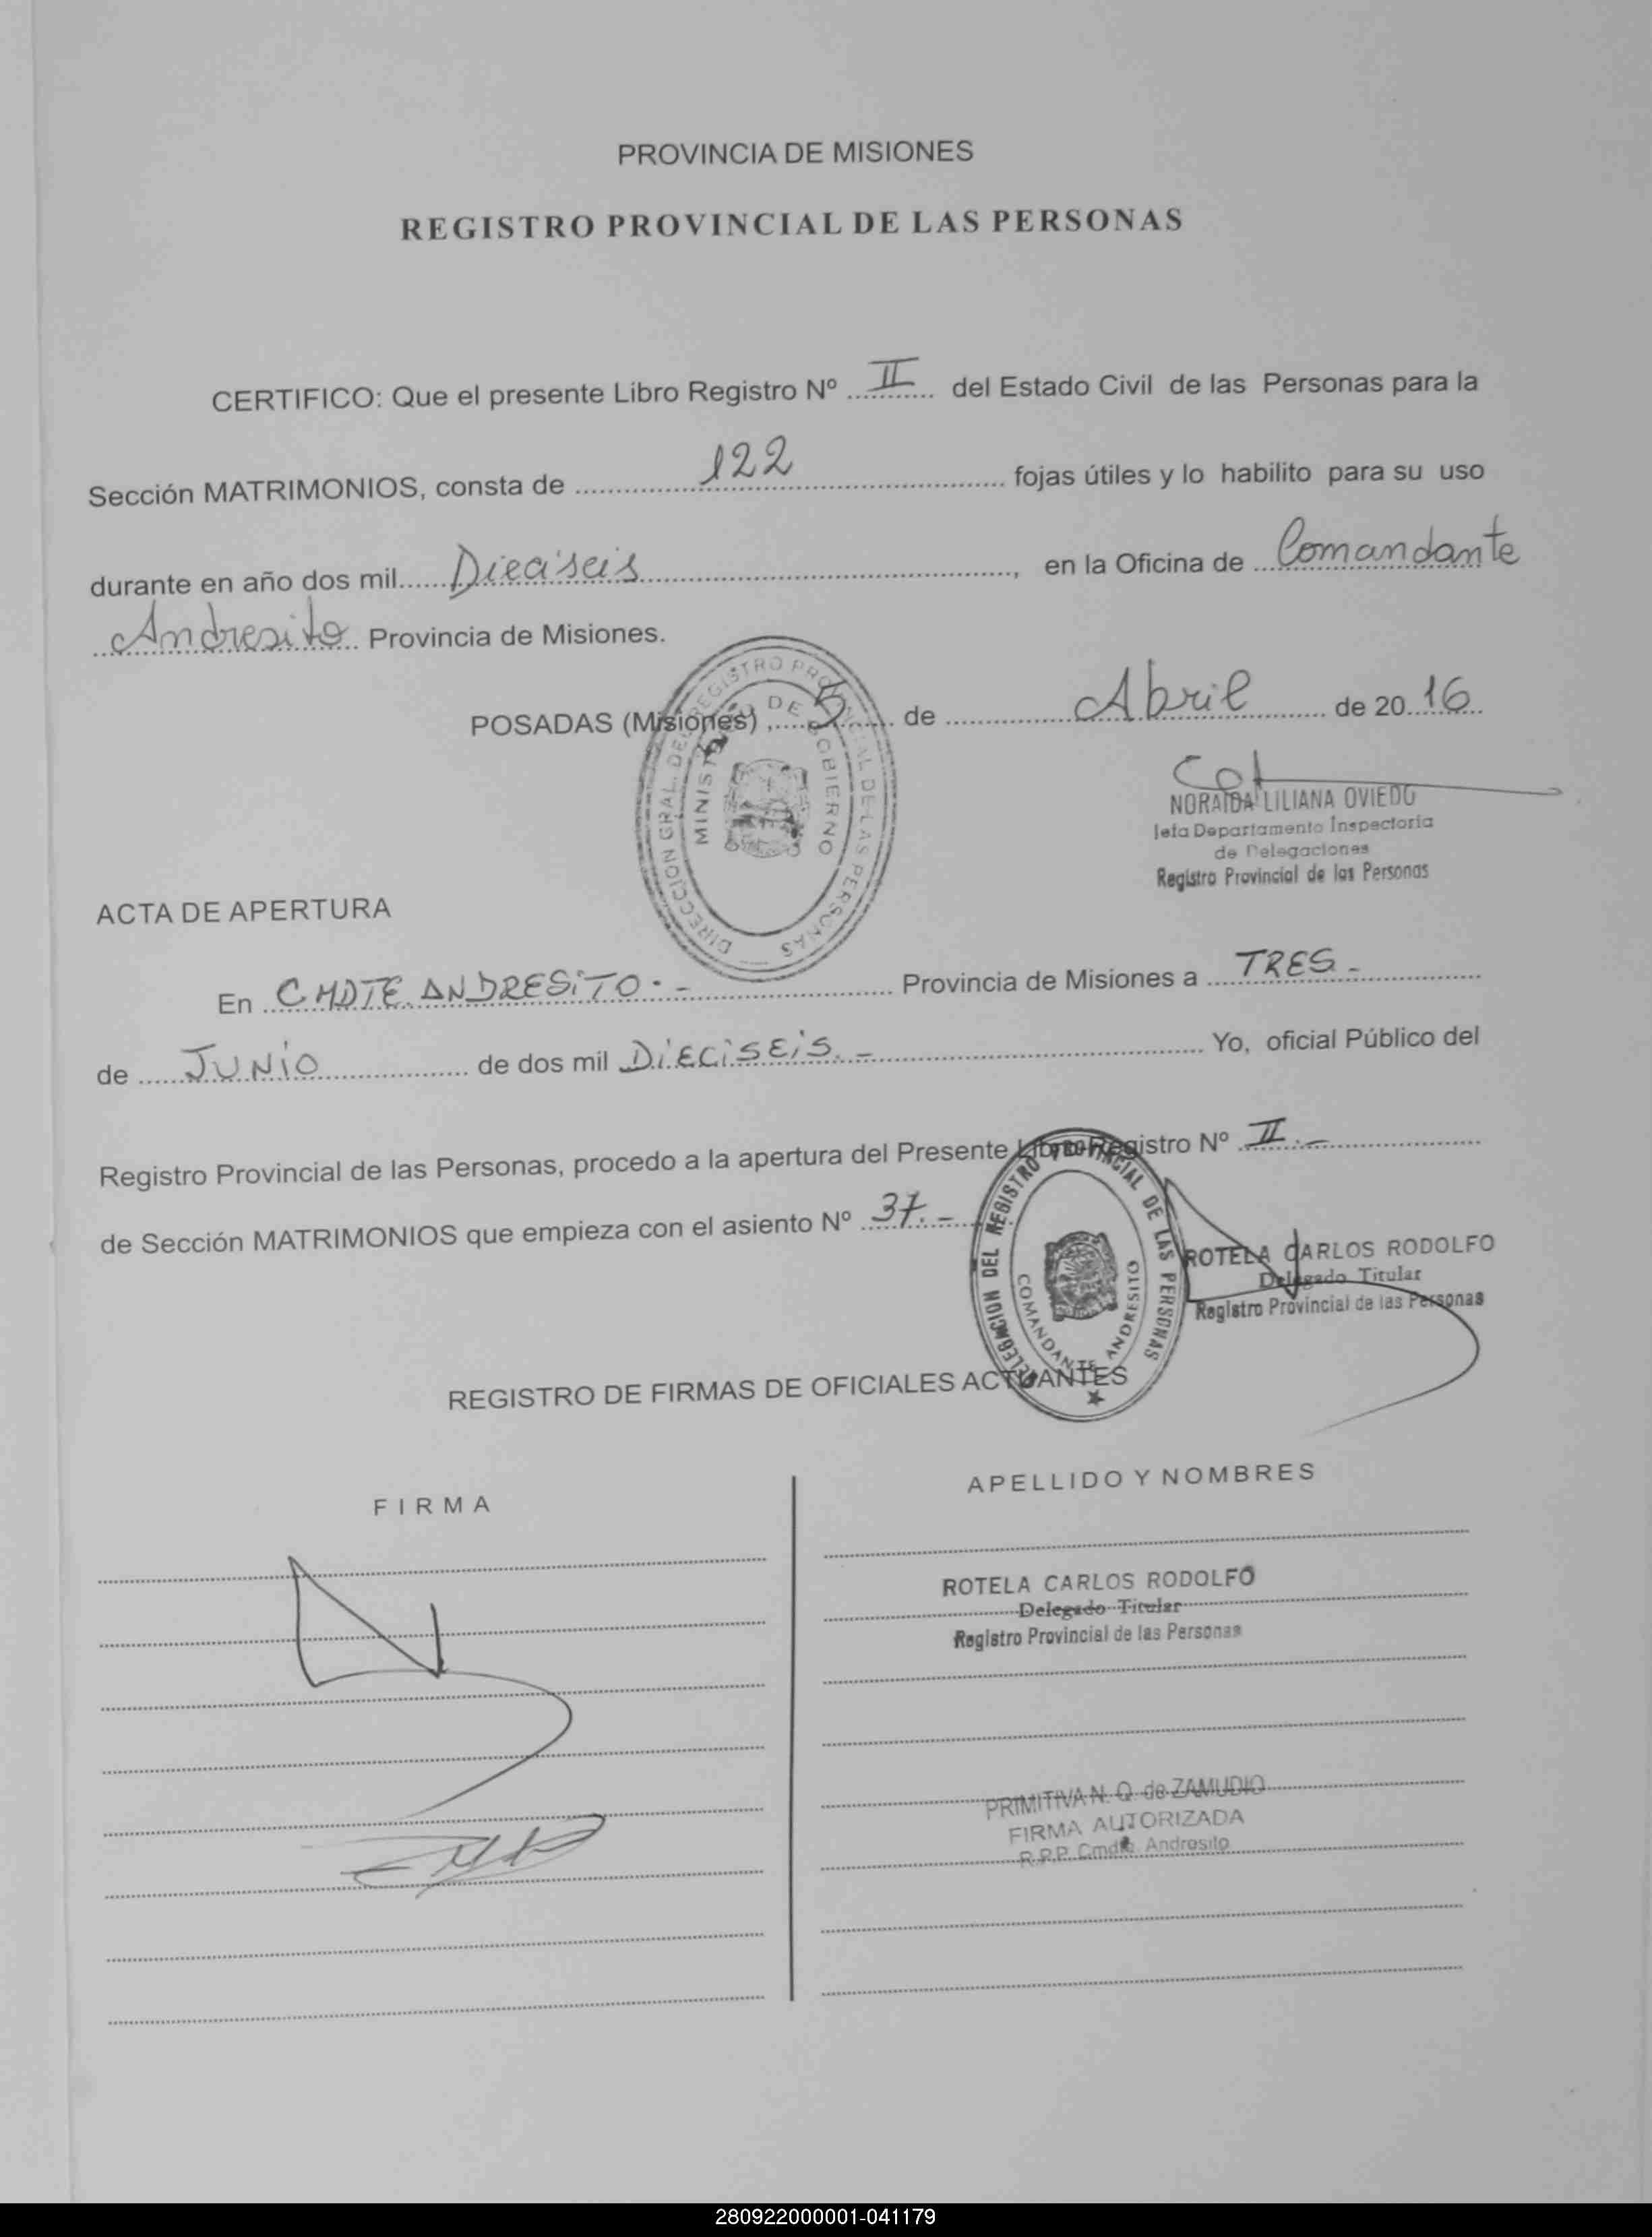 PROVINCIA DE MISIONES
REGISTRO PROVINCIAL DE LAS PERSONAS
CERTIFICO: Que el presente Libro Registro Nº II del Estado Civil de las Personas para la
Sección MATRIMONIOS, consta de 122 fojas útiles y lo habilito para su uso
durante en año dos mil Dieciseis, en la Oficina de Comandante
Andresito Provincia de Misiones.
POSADAS (Misiones), 5 de Abril de 2016
DIRECCION GRAL. DEL REGISTRO PROVINCIAL DE LAS PERSONAS
MINISTERIO DE GOBIERNO
NORAIDA LILIANA OVIEDO
Jefa Departamento Inspectoria
de Delegaciones
Registro Provincial de las Personas
ACTA DE APERTURA
En CMDTE. ANDRESITO.- Provincia de Misiones a TRES.-
de JUNIO de dos mil DIECISEIS.- Yo, oficial Público del
Registro Provincial de las Personas, procedo a la apertura del Presente Libro Registro Nº II.-
de Sección MATRIMONIOS que empieza con el asiento Nº 37.-
DELEGACION DEL REGISTRO PROVINCIAL DE LAS PERSONAS
COMANDANTE ANDRESITO
ROTELA CARLOS RODOLFO
Delegado Titular
Registro Provincial de las Personas
REGISTRO DE FIRMAS DE OFICIALES ACTUANTES
FIRMA
APELLIDO Y NOMBRES
ROTELA CARLOS RODOLFO
Delegado Titular
Registro Provincial de las Personas
PRIMITIVA N. Q. de ZAMUDIO
FIRMA AUTORIZADA
R.P.P. Cmdte. Andresito
280922000001-041179